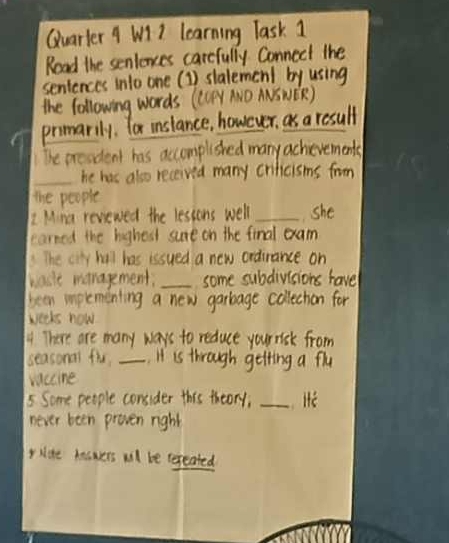 Quarter 4 W1 2 learning Task 1
Read the sentences carefully Connect the
sentences into one (1) statement by using
the following words (COPY AND ANSWER)
primarily, for instance, however, as a result
1. The president has accomplished many achievements
____ he has also received many criticisms from
the people
2 Mina reviewed the lessons well ____, she
earned the highest score on the final exam
3 The city hall has issued a new ordinance on
waste management; ____, some subdivisions have
been implementing a new garbage collection for
weeks now.
4 There are many ways to reduce your risk from
seasonal flu, ____, it is through getting a flu
vaccine
5 Some people consider this theory, ____, it's
never been proven right
* Note Answers will be repeated